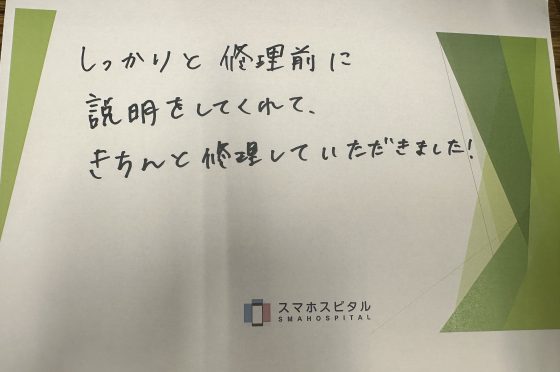 しっかりと修理前に
説明をしてくれて、
きちんと修理していただきました!
スマホスピタル
SMAHOSPITAL